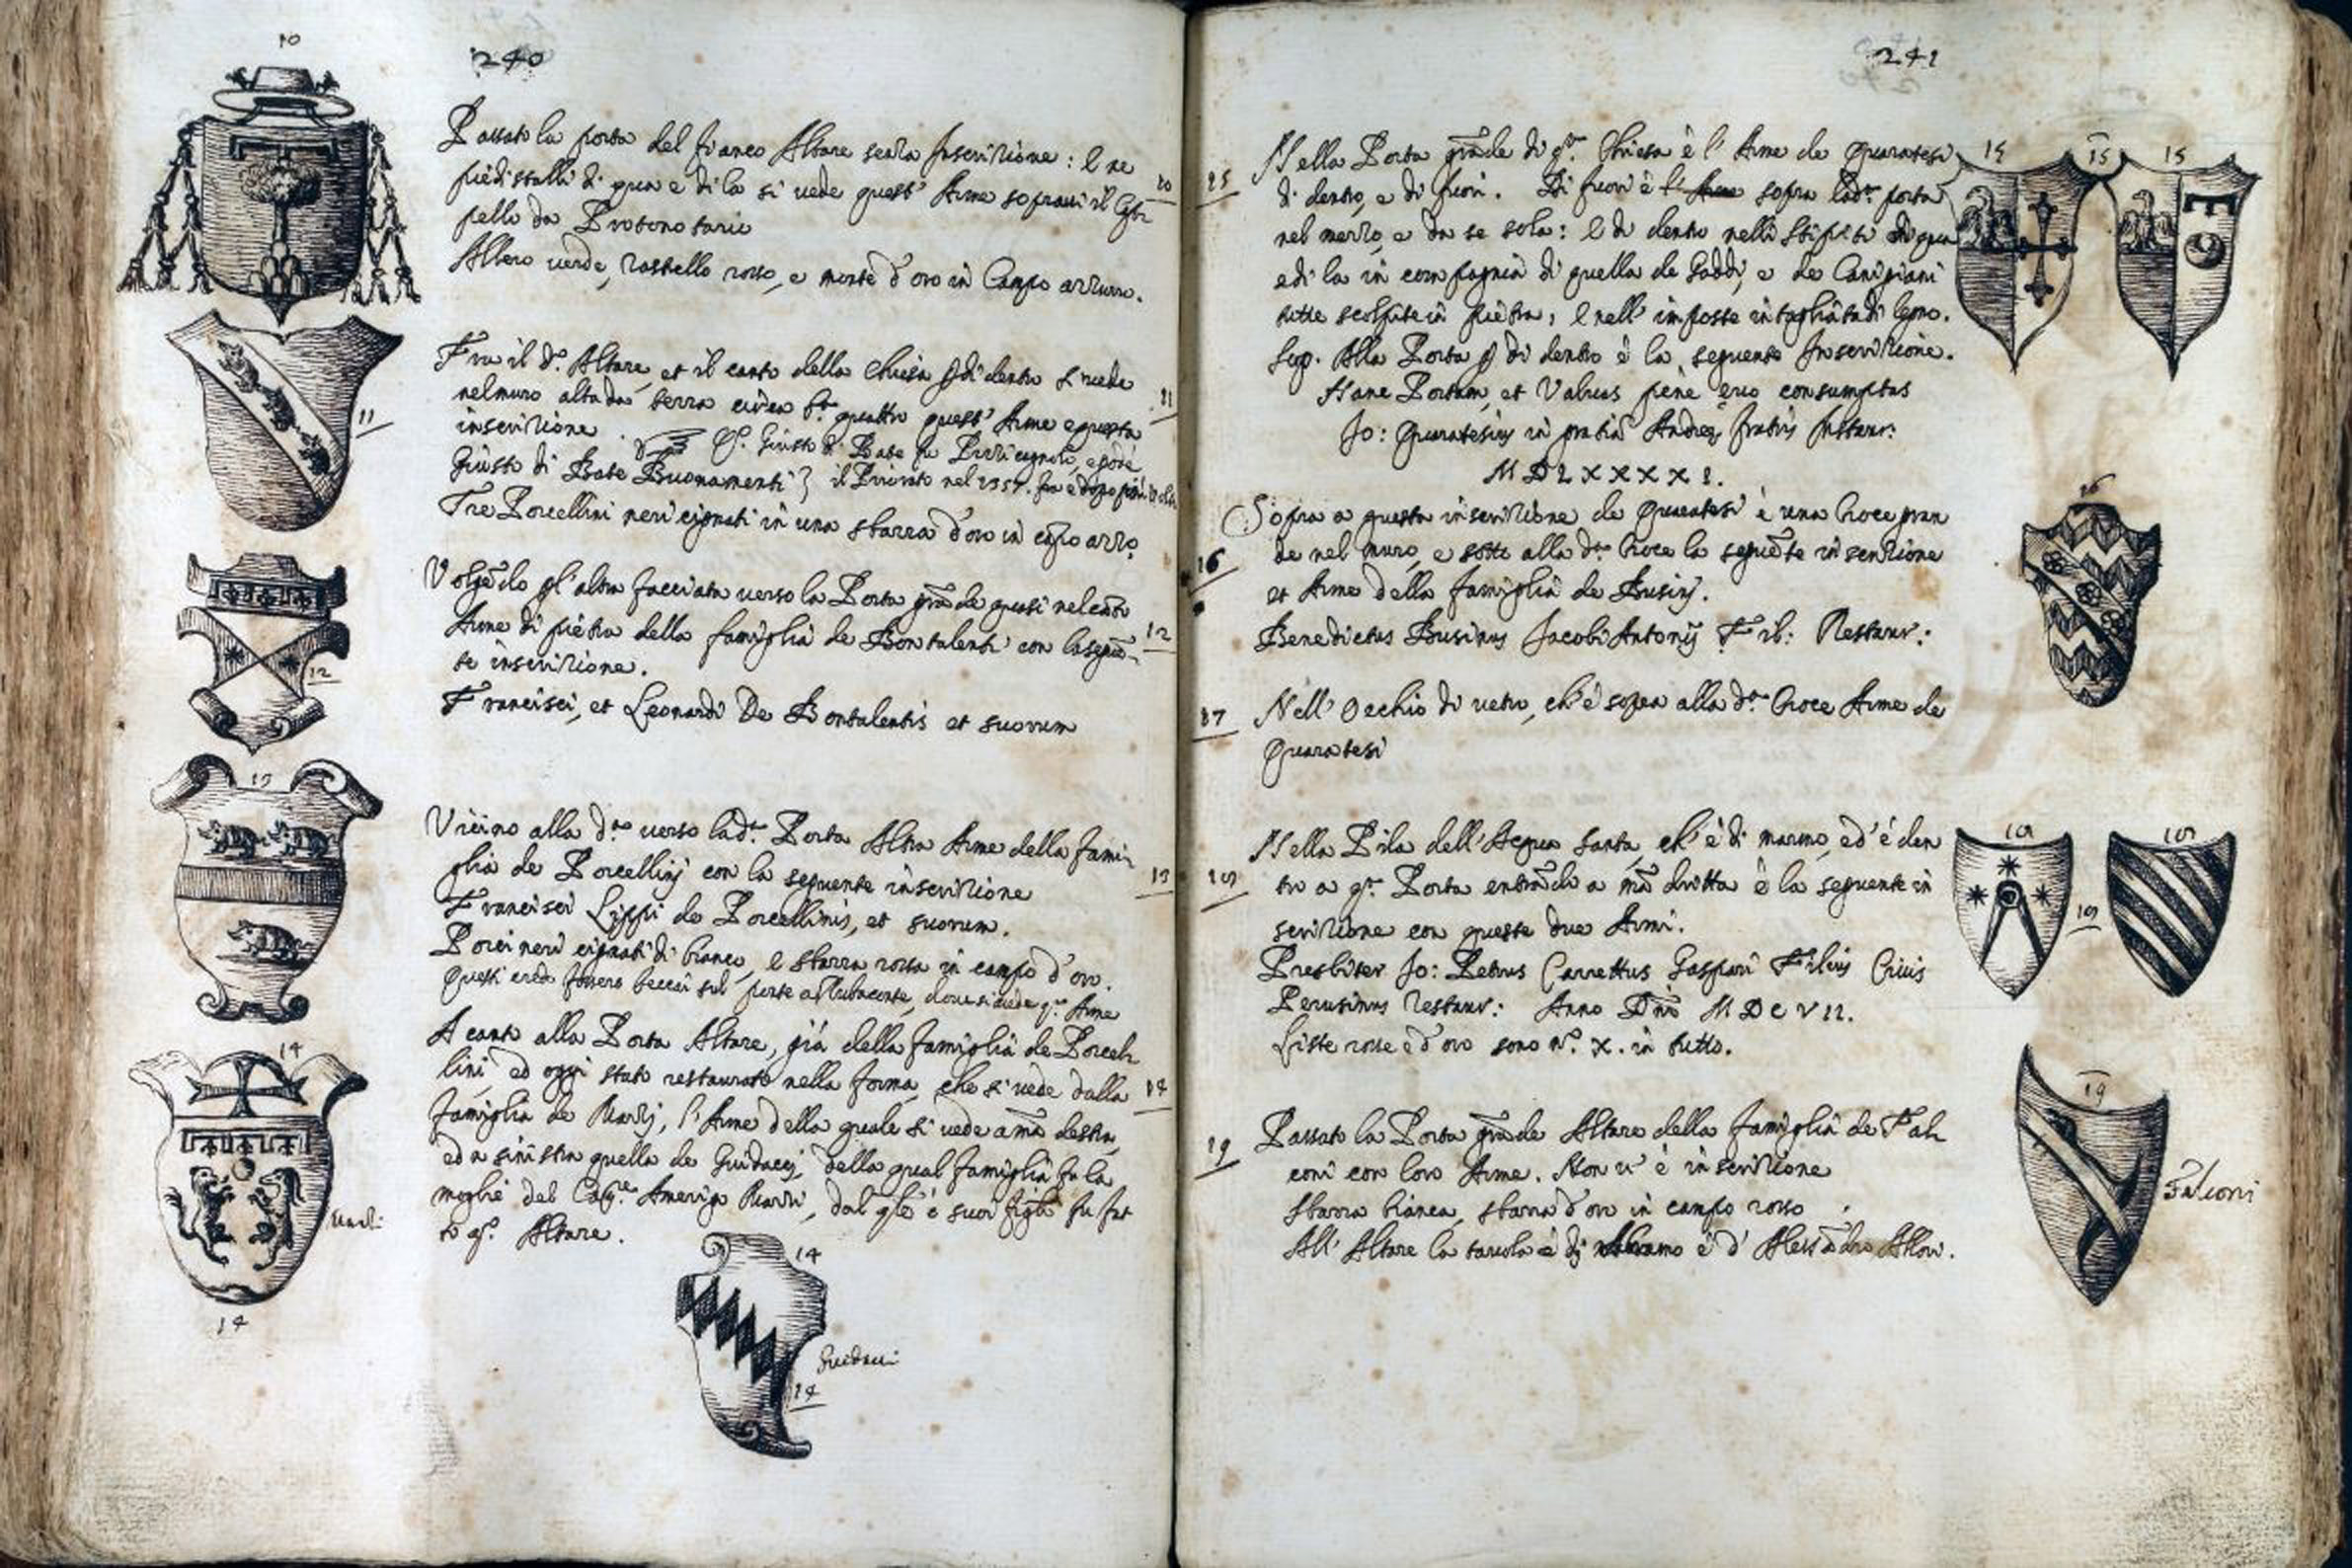 240
10
Passato la porta del fianco Altare senza Inscrizione: e ne
piedistalli di qua e di la si vede quest' Arme sopravi il Cap
pello da Protonotario
10
Albero verde, rastello rosso, e monte d'oro in Campo azzurro.
Fra il d.º Altare, et il canto della Chiesa di dentro si vede
nel muro alta da terra circa b.ª quattro quest' Arme e questa
inscrizione.
11
11
Giusto di Bate fu Pizzicagnolo, e gode
Giusto di Bate Buonamenti } il Priorato nel 1357.
Tre Porcellini neri cignati in una sbarra d'oro in cãpo azzo
Volgẽdo all'altra facciata verso la Porta grãde quasi nel cãto
Arme di pietra della famiglia de Bontalenti con la seguẽ
te inscrizione.
12
12
Francisci, et Leonardi De Bontalentis et suorum
13
Vicino alla d.ª verso la d.ª Porta Altra Arme della fami
glia de Porcellinj con la seguente inscrizione
13
Francisci Lippi de Porcellinis, et suorum.
Porci neri cignati di bianco, e sbarra rossa in campo d'oro.
Questi credo fossero beccai sul ponte a Rubaconte, dove si vede q.ª Arme
A canto alla Porta Altare, già della famiglia de Porcel
lini, ed oggi stato restaurato nella forma, che si vede dalla
famiglia de Nardj, l'Arme della quale si vede a mã destra,
ed a sinistra quella de Guidacci, della qual famiglia fu la
moglie del Cap.re Amerigo Nardi, dal qle e suoi figli fu fat
to q.º Altare.
14
14
14
Nardi
14
Guidacci
14
241
15
Nella Porta grãde di q.ª Chiesa è l'Arme de Quaratesi
di dentro, e di fuori. Di fuori è l'Arme sopra la d.ª porta
nel mezzo, e da se sola: e di dentro nelli stipiti di qua
e di la in compagnia di quella de Gaddi, e de Canigiani
tutte scolpite in pietra, e nell'imposte intagliata di legno.
Seg. Alla Porta di dentro è la seguente Inscrizione.
15
15
15
Hanc Portam, et Valvas penè evo consumptas
Jo: Quaratesius in gratiã Andreę fratris Instaur:
MDLXXXXI.
Sopra a questa inscrizione de Quaratesi è una Croce gran
de nel muro, e sotto alla d.ª Croce la seguẽte inscrizione
et Arme della famiglia de Businj.
16
16
Benedictus Businus Jacobi Antonij Fil: Restaur:
17
Nell'Occhio di vetro, ch'è sopra alla d.ª Croce Arme de
Quaratesi
18
Nella Pila dell'Acqua santa, ch'è di marmo, ed'è den
tro a q.ª Porta entrãdo a mã dritta è la seguente in
scrizione con queste due Armi.
18
18
18
Presbiter Jo: Petrus Carrettus Gaspari Filius Civis
Perusinus restaur: Anno Dñi MDCVII.
Liste rosse e d'oro sono nº. X. in tutto.
19
Passato la Porta grãde Altare della famiglia de Fal
coni con loro Arme. Non vi è inscrizione
Sbarra bianca, sbarra d'oro in campo rosso
All'Altare la tavola è di mano è d'Alessãdro Allori.
19
Falconi